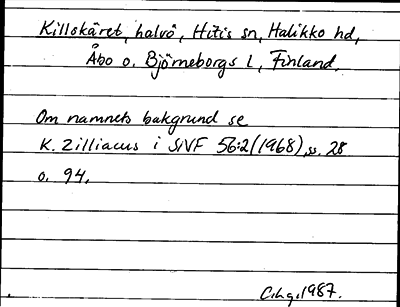 Killskäret, halvö, Hitis sn, Halikko hd,
Åbo o. Björneborgs l, Finland.
Om namnets bakgrund se
K. Zilliacus i SNF 56:2(1968), ss. 28
o. 94.
C.h.g. 1987.